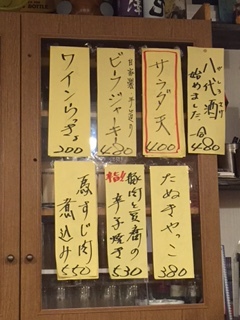 八代酒
始めました 一合
480
サラダ天
400
自家製 手造り
ビーフジャーキー
480
ワインらっきょ
300
たぬきやっこ
380
豚肉と豆腐の
辛子焼き
530
鳥すじ肉
煮込み
550